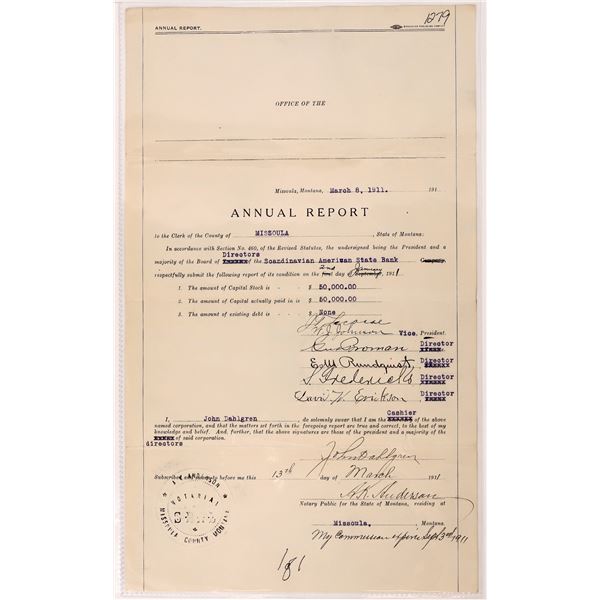 1279
ANNUAL REPORT.
OFFICE OF THE
Missoula, Montana, March 8, 1911. 191
ANNUAL REPORT
to the Clerk of the County of MISSOULA , State of Montana:
In accordance with Section No. 460, of the Revised Statutes, the undersigned being the President and a
Directors
majority of the Board of xxxxxx of the Scandinavian American State Bank Company,
2nd January
respectfully submit the following report of its condition on the first day 1911
1. The amount of Capital Stock is - - $ 50,000.00
2. The amount of Capital actually paid in is $ 50,000.00
3. The amount of existing debt is - - $ None
Johnson Vice President.
Broman Director
xxxxx
E.M. Rundquist, Director
xxxxx
S Fredericks Director
xxxxx
W. Erickson Director
xxxxx
Cashier
I, John Dahlgren do solemnly swear that I am the xxxxxx of the above
named corporation, and that the matters set forth in the foregoing report are true and correct, to the best of my
knowledge and belief. And, further, that the above signatures are those of the president and a majority of the
xxxxx of said corporation.
directors
John Dahlgren
Subscribed and sworn to before me this 13th day of March 1911
A.K. Anderson
Notary Public for the State of Montana, residing at
Missoula, , Montana.
My Commission expires Sept 3rd 1911
NOTARIAL
MISSOULA COUNTY MONTANA
181